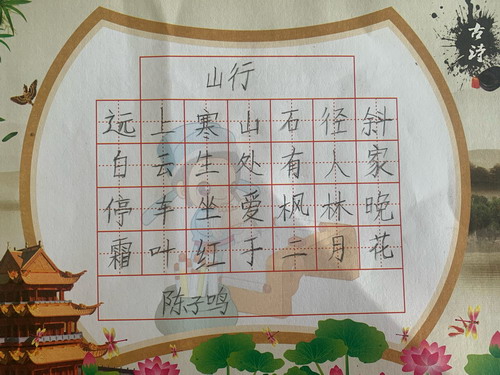 山行
远上寒山石径斜
自云生处有人家
停车坐爱枫林晚
霜叶红于二月花
陈子鸣
古诗